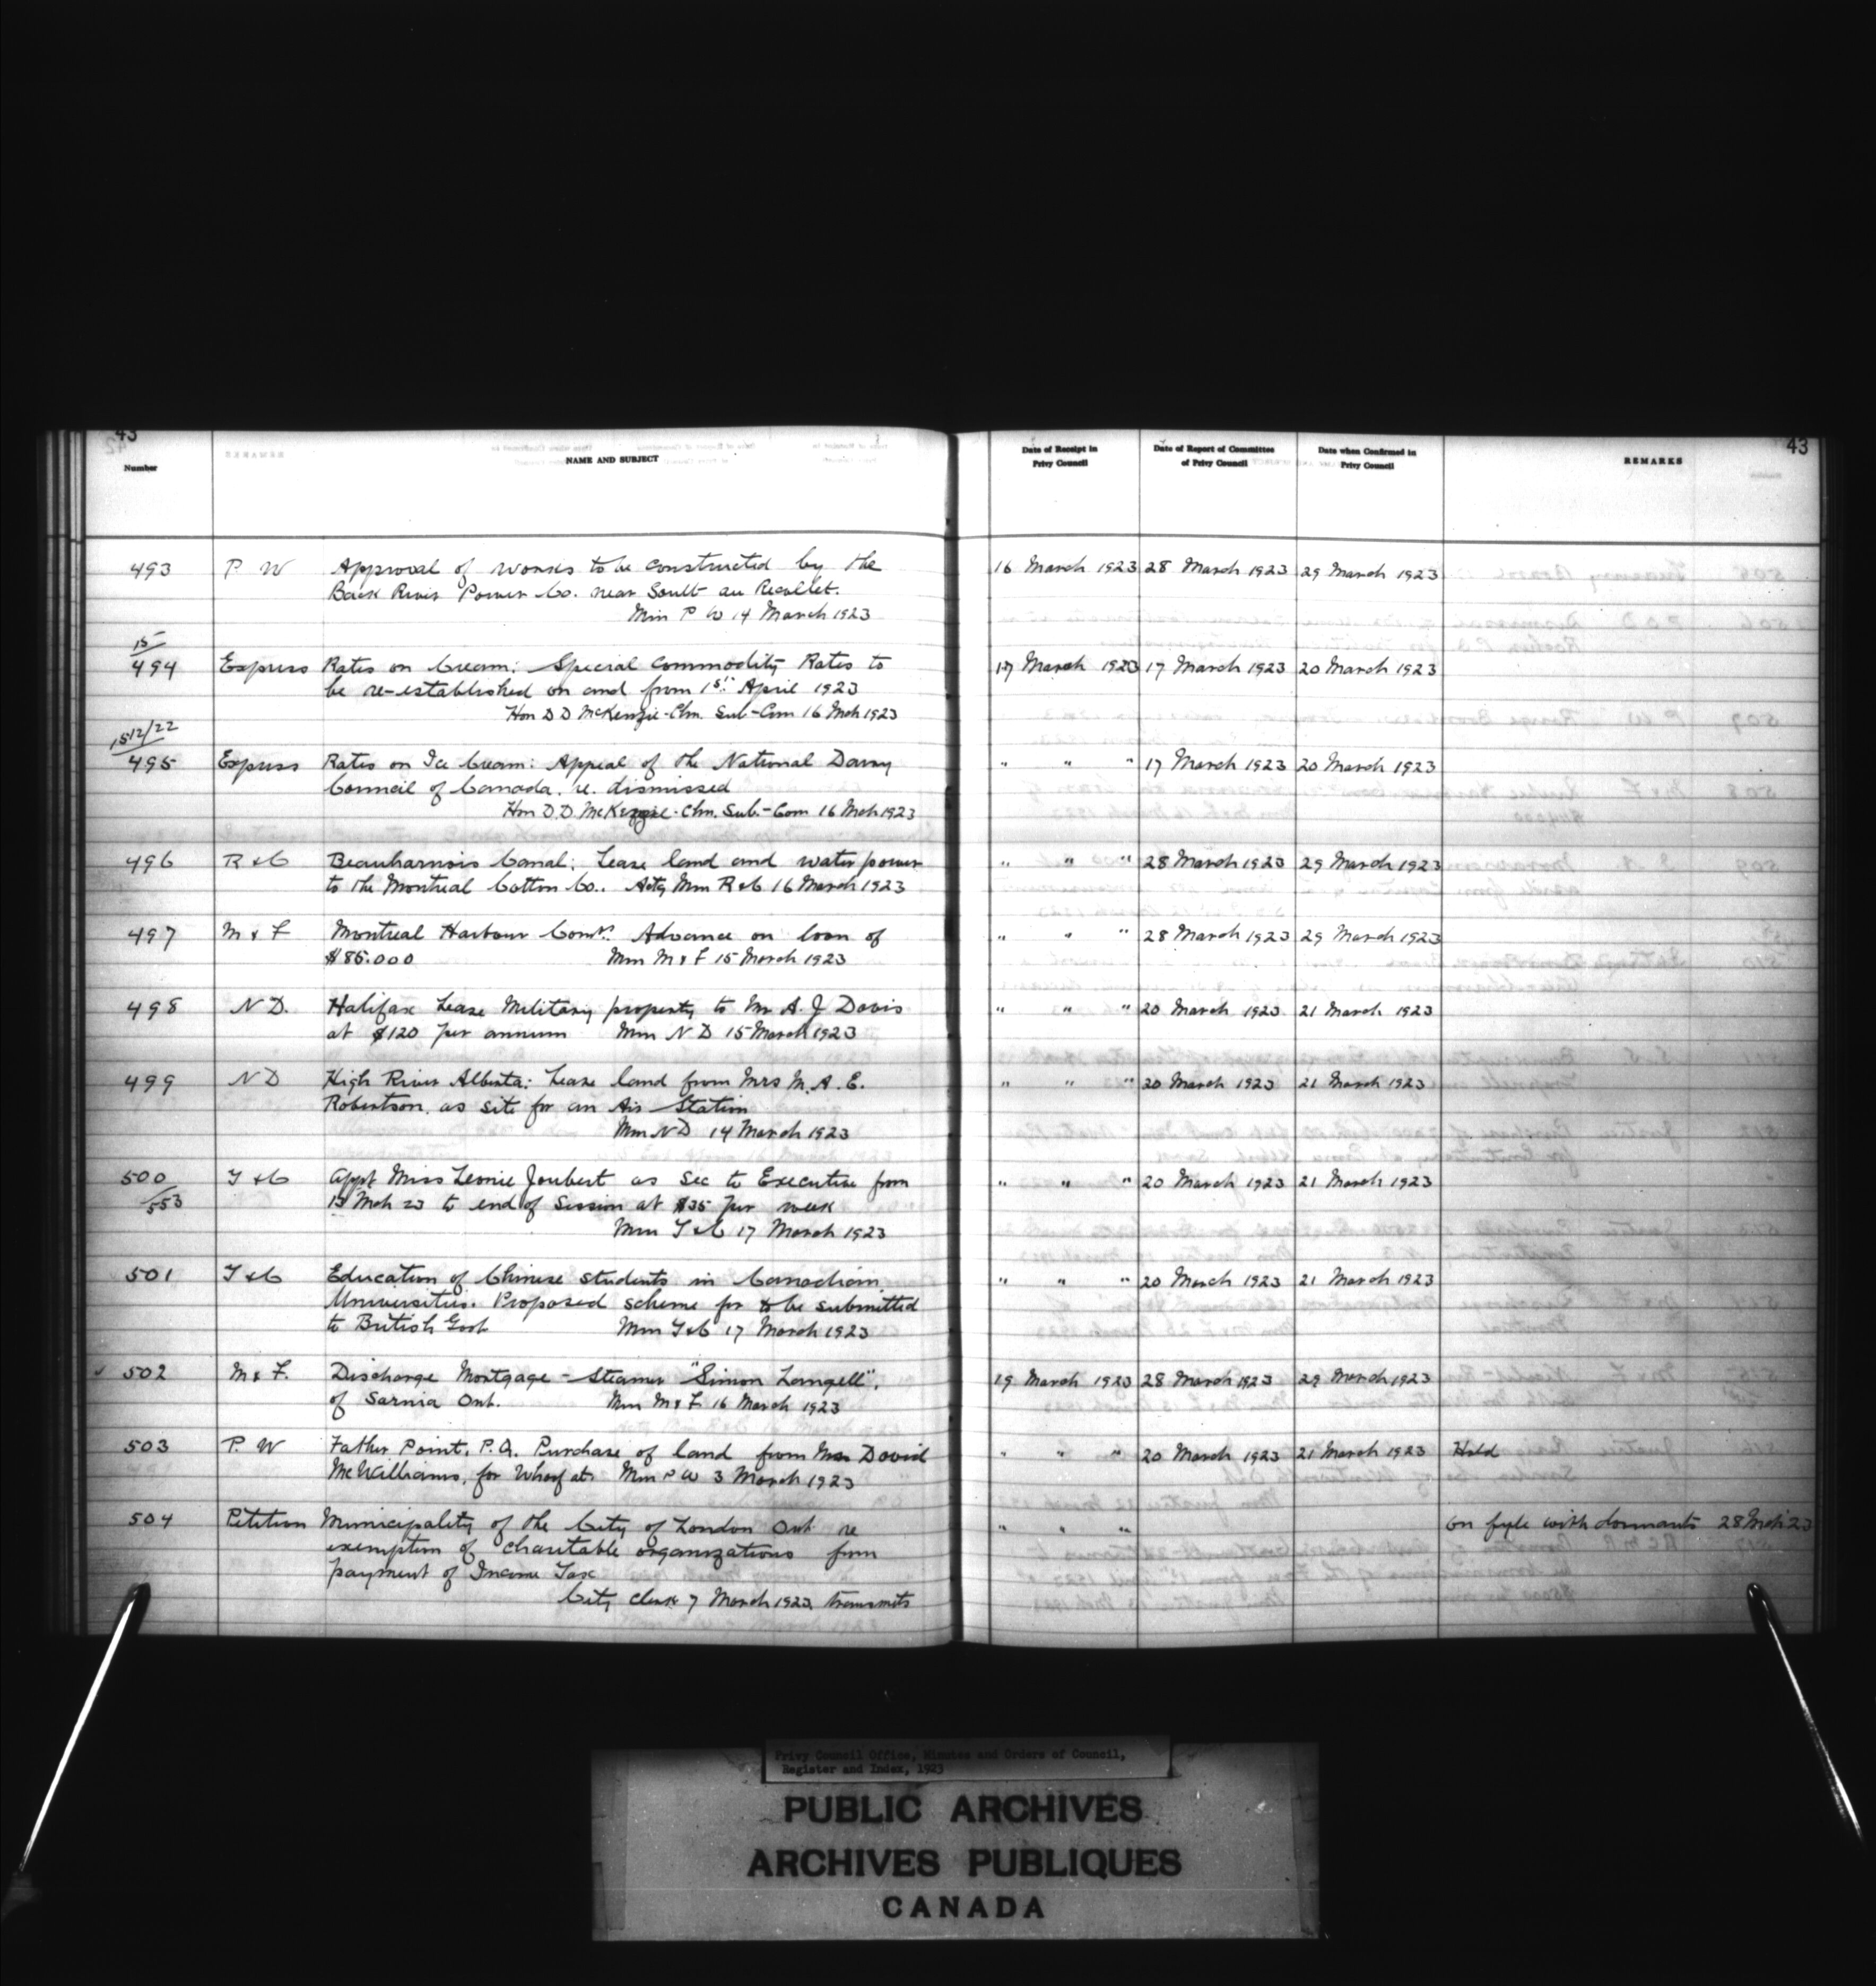 43
Number
NAME AND SUBJECT
Date of Receipt in Privy Council
Date of Report of Committee of Privy Council
Date when Confirmed in Privy Council
REMARKS
43
493 P W Approval of works to be constructed by the 16 March 1923 28 March 1923 29 March 1923
Back River Power Co. near Soult au Recollet.
Min P W 14 March 1923
15/
494 Express Rates on Cream: Special Commodity Rates to 17 March 1923 17 March 1923 20 March 1923
be re-established on and from 1st April 1923
Hon D D McKenzie - Chm. Sub-Com 16 Mch 1923
1512/22
495 Express Rates on Ice Cream: Appeal of the National Dairy " " " 17 March 1923 20 March 1923
Council of Canada. re. dismissed
Hon D.D. McKenzie - Chm. Sub.-Com 16 Mch 1923
496 R & C Beauharnois Canal: Lease land and water power " " " 28 March 1923 29 March 1923
to the Montreal Cotton Co.. Actg Min R & C 16 March 1923
497 M & F Montreal Harbour Comrs. Advance on loan of " " " 28 March 1923 29 March 1923
$85.000 Min M & F 15 March 1923
498 N D. Halifax Lease Military property to Mr A. J Davis " " " 20 March 1923 21 March 1923
at $120 per annum Min N D 15 March 1923
499 N D High River Alberta: Lease land from Mrs M. A. E. " " " 20 March 1923 21 March 1923
Robertson. as site for an Air Station
Min N D 14 March 1923
500 T & C Appt Miss Leonie Joubert as Sec to Executive from " " " 20 March 1923 21 March 1923
/553 Mch 23 to end of Session at $35 per week
Min T & C 17 March 1923
501 T & C Education of Chinese students in Canadian " " " 20 March 1923 21 March 1923
Universities. Proposed scheme for to be submitted
to British Govt Min T & C 17 March 1923
502 M & F. Discharge Mortgage - Steamer "Simon Langell", 19 March 1923 28 March 1923 29 March 1923
of Sarnia Ont. Min M & F 16 March 1923
503 P. W Father Point, P.Q. Purchase of land from Mrs David " " " 20 March 1923 21 March 1923 Held
McWilliams, for Wharf at. Min P W 3 March 1923
504 Petition Municipality of the City of London Ont re " " " on fyle with dormants 28 Mch '23
exemption of charitable organizations from
payment of Income Tax
City Clerk 7 March 1923 transmits
Privy Council Office, Minutes and Orders of Council,
Register and Index, 1923
PUBLIC ARCHIVES
ARCHIVES PUBLIQUES
CANADA